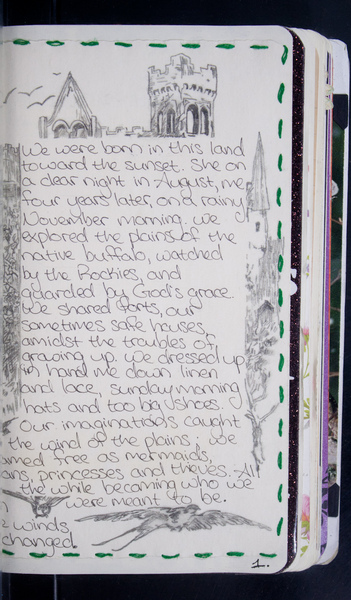 We were born in this land
toward the sunset. She on
a clear night in August, me
four years later, on a rainy
November morning. We
explored the plains of the
native buffalo, watched
by the Rockies, and
guarded by God's grace.
We shared forts, our
sometimes safe houses,
amidst the troubles of
growing up. We dressed up
in hand me down linen
and lace, sunday morning
hats and too big shoes.
Our imaginations caught
the wind of the plains, we
free as mermaids,
princesses and thieves. All
the while becoming who we
were meant to be.
winds
changed.
1.